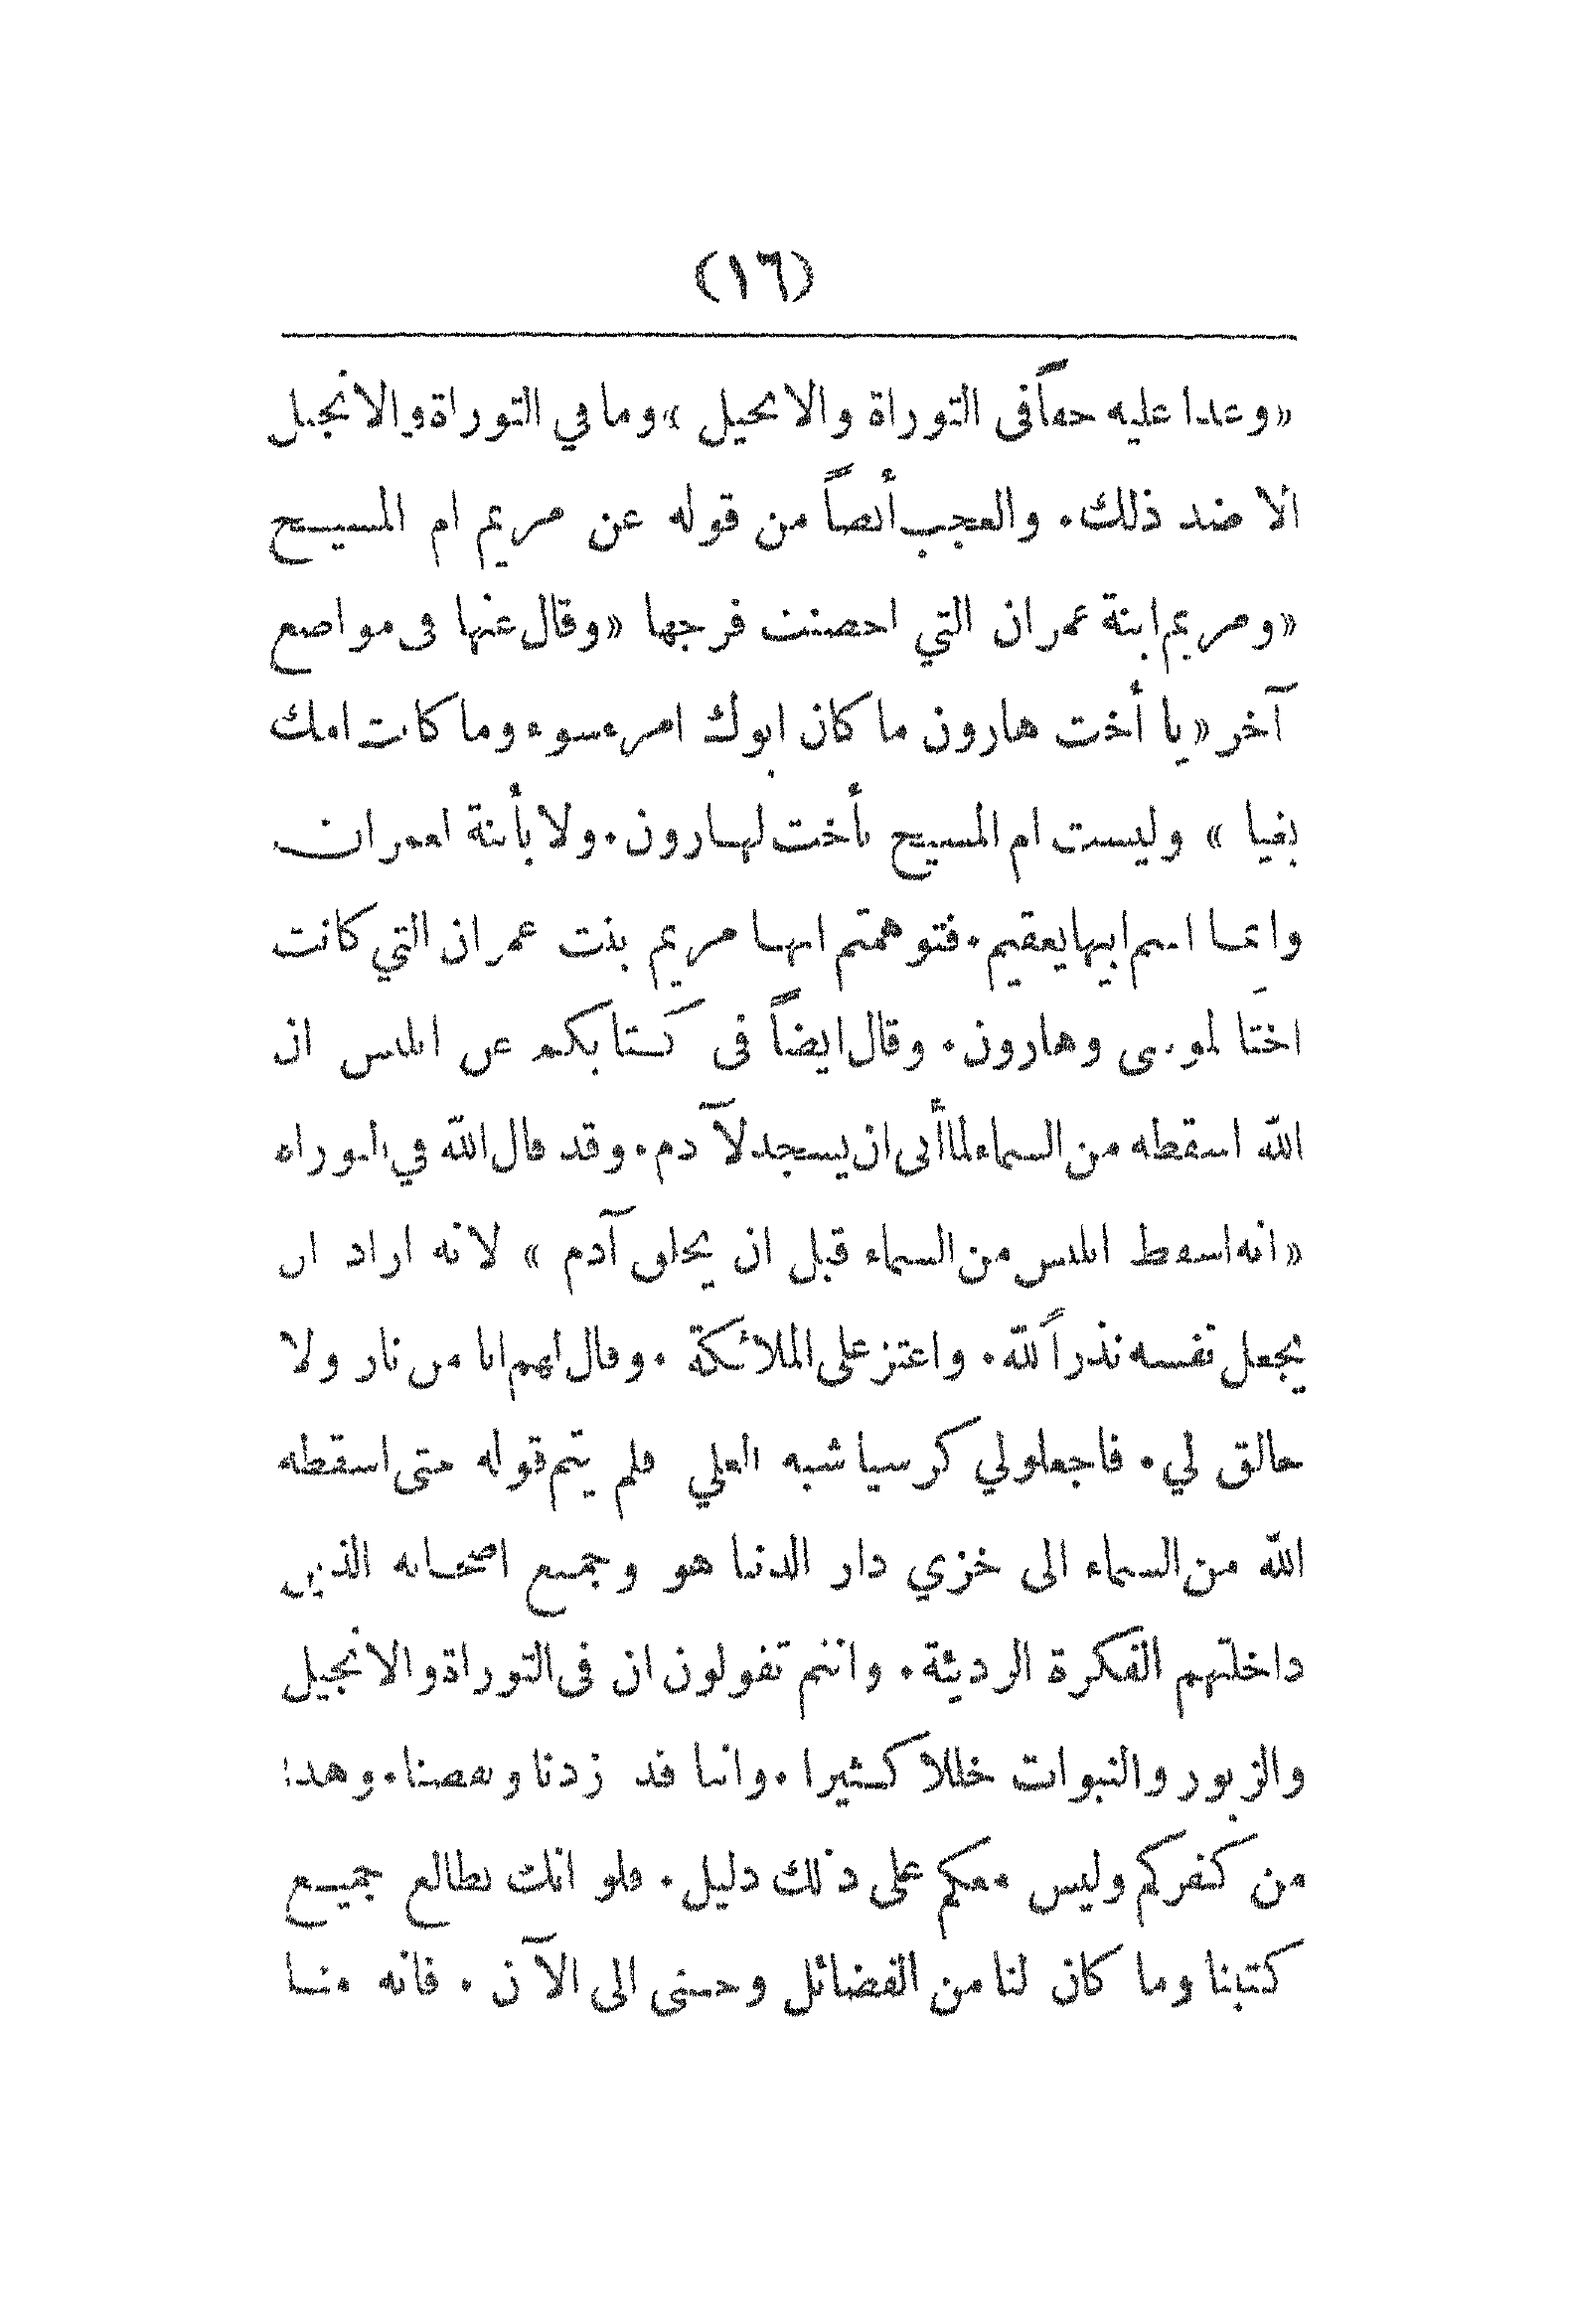 (١٦)
«وعدا عليه حقاً فى التوراة والانجيل» وما في التوراة والانجيل
الا ضد ذلك. والعجب أيضاً من قوله عن مريم ام المسيح
«ومريم ابنة عمران التي احصنت فرجها «وقال عنها فى مواضع
آخر «يا أخت هارون ما كان ابوك امرء سوء وما كانت امك
بغيا» وليست ام المسيح بأخت لهارون. ولا بأبنة لعمران
وانما اسم ابيها يعقيم. فتوهمتم انها مريم بنت عمران التي كانت
اختَا لموسى وهارون. وقال ايضاً فى كتابكم عن ابليس ان
الله اسقطه من السماء لما أبى ان يسجد لآدم. وقد قال الله في التوراه
«انه اسقط ابليس من السماء قبل ان يخلق آدم» لانه اراد ان
يجعل نفسه نذراً لله. واعتز على الملائكة. وقال لهم انا من نار ولا
خالق لي. فاجعلولي كرسيا شبه العلي فلم يتم قوله حتى اسقطه
الله من السماء الى خزي دار الدنيا هو وجميع اصحابه الذين
داخلتهم الفكرة الرديئة. وانتم تقولون ان فى التوراة والانجيل
والزبور والنبوات خللا كثيرا. واننا قد زدنا ونقصنا. وهذا
من كفركم وليس معكم على ذلك دليل. فلو انك تطالع جميع
كتبنا وما كان لنا من الفضائل وحتى الى الآن. فانه منا